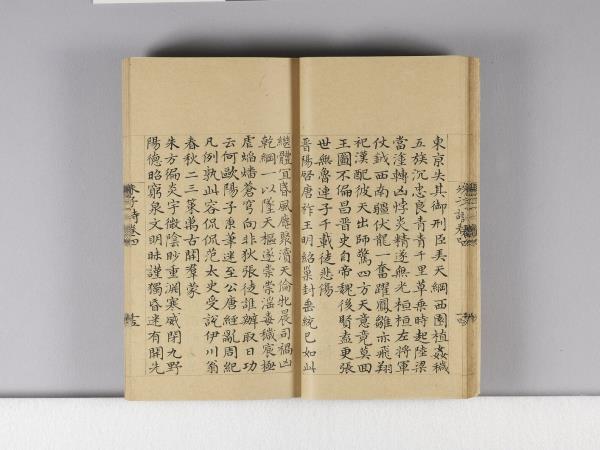 東京失其御刑臣弄天綱西園植姦穢
五族沉忠良青青千里草乘時起陸梁
當塗轉凶悖炎精遂無光桓桓左將軍
仗鉞西南疆伏龍一奮躍鳳雛亦飛翔
祀漢配彼天出師驚四方天意竟莫回
王圖不偏昌晉史自帝魏後賢盍更張
世無魯連子千載徒悲傷
晉陽啓唐祚王明紹巢封垂統已如此
繼體宜昏風麀聚瀆天倫牝晨司禍凶
乾綱一以墜天樞遂崇崇淫毒穢宸極
虐焰燔蒼穹向非狄張徒誰辦取日功
云何歐陽子秉筆迷至公唐經亂周紀
凡例孰此容侃侃范太史受說伊川翁
春秋二三策萬古開羣蒙
朱方徧炎宇微陰眇重淵寒威閉九野
陽德昭窮泉文明昧謹獨昏迷有開先